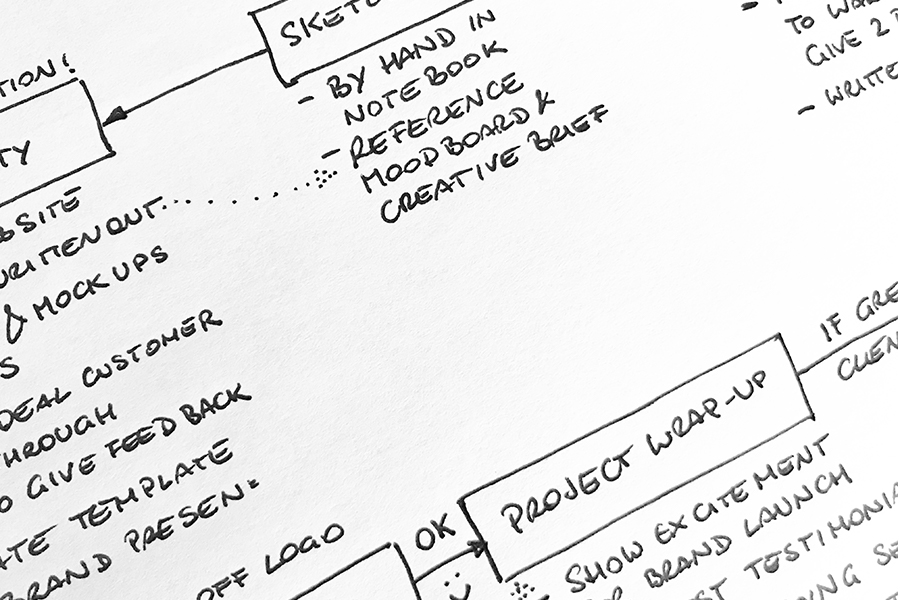 SKETC
- BY HAND IN
NOTEBOOK
- REFERENCE
MOODBOARD &
CREATIVE BRIEF
TO
GIVE 2
- WRITTE
TION!
TY
BSITE
WRITTEN OUT
& MOCKUPS
S
DEAL CUSTOMER
THROUGH
O GIVE FEEDBACK
ATE TEMPLATE
BRAND PRESEN=
OFF LOGO
OK
PROJECT WRAP-UP
IF GRE
CLIEN
- SHOW EXCITEMENT
BRAND LAUNCH
ST TESTIMONIA